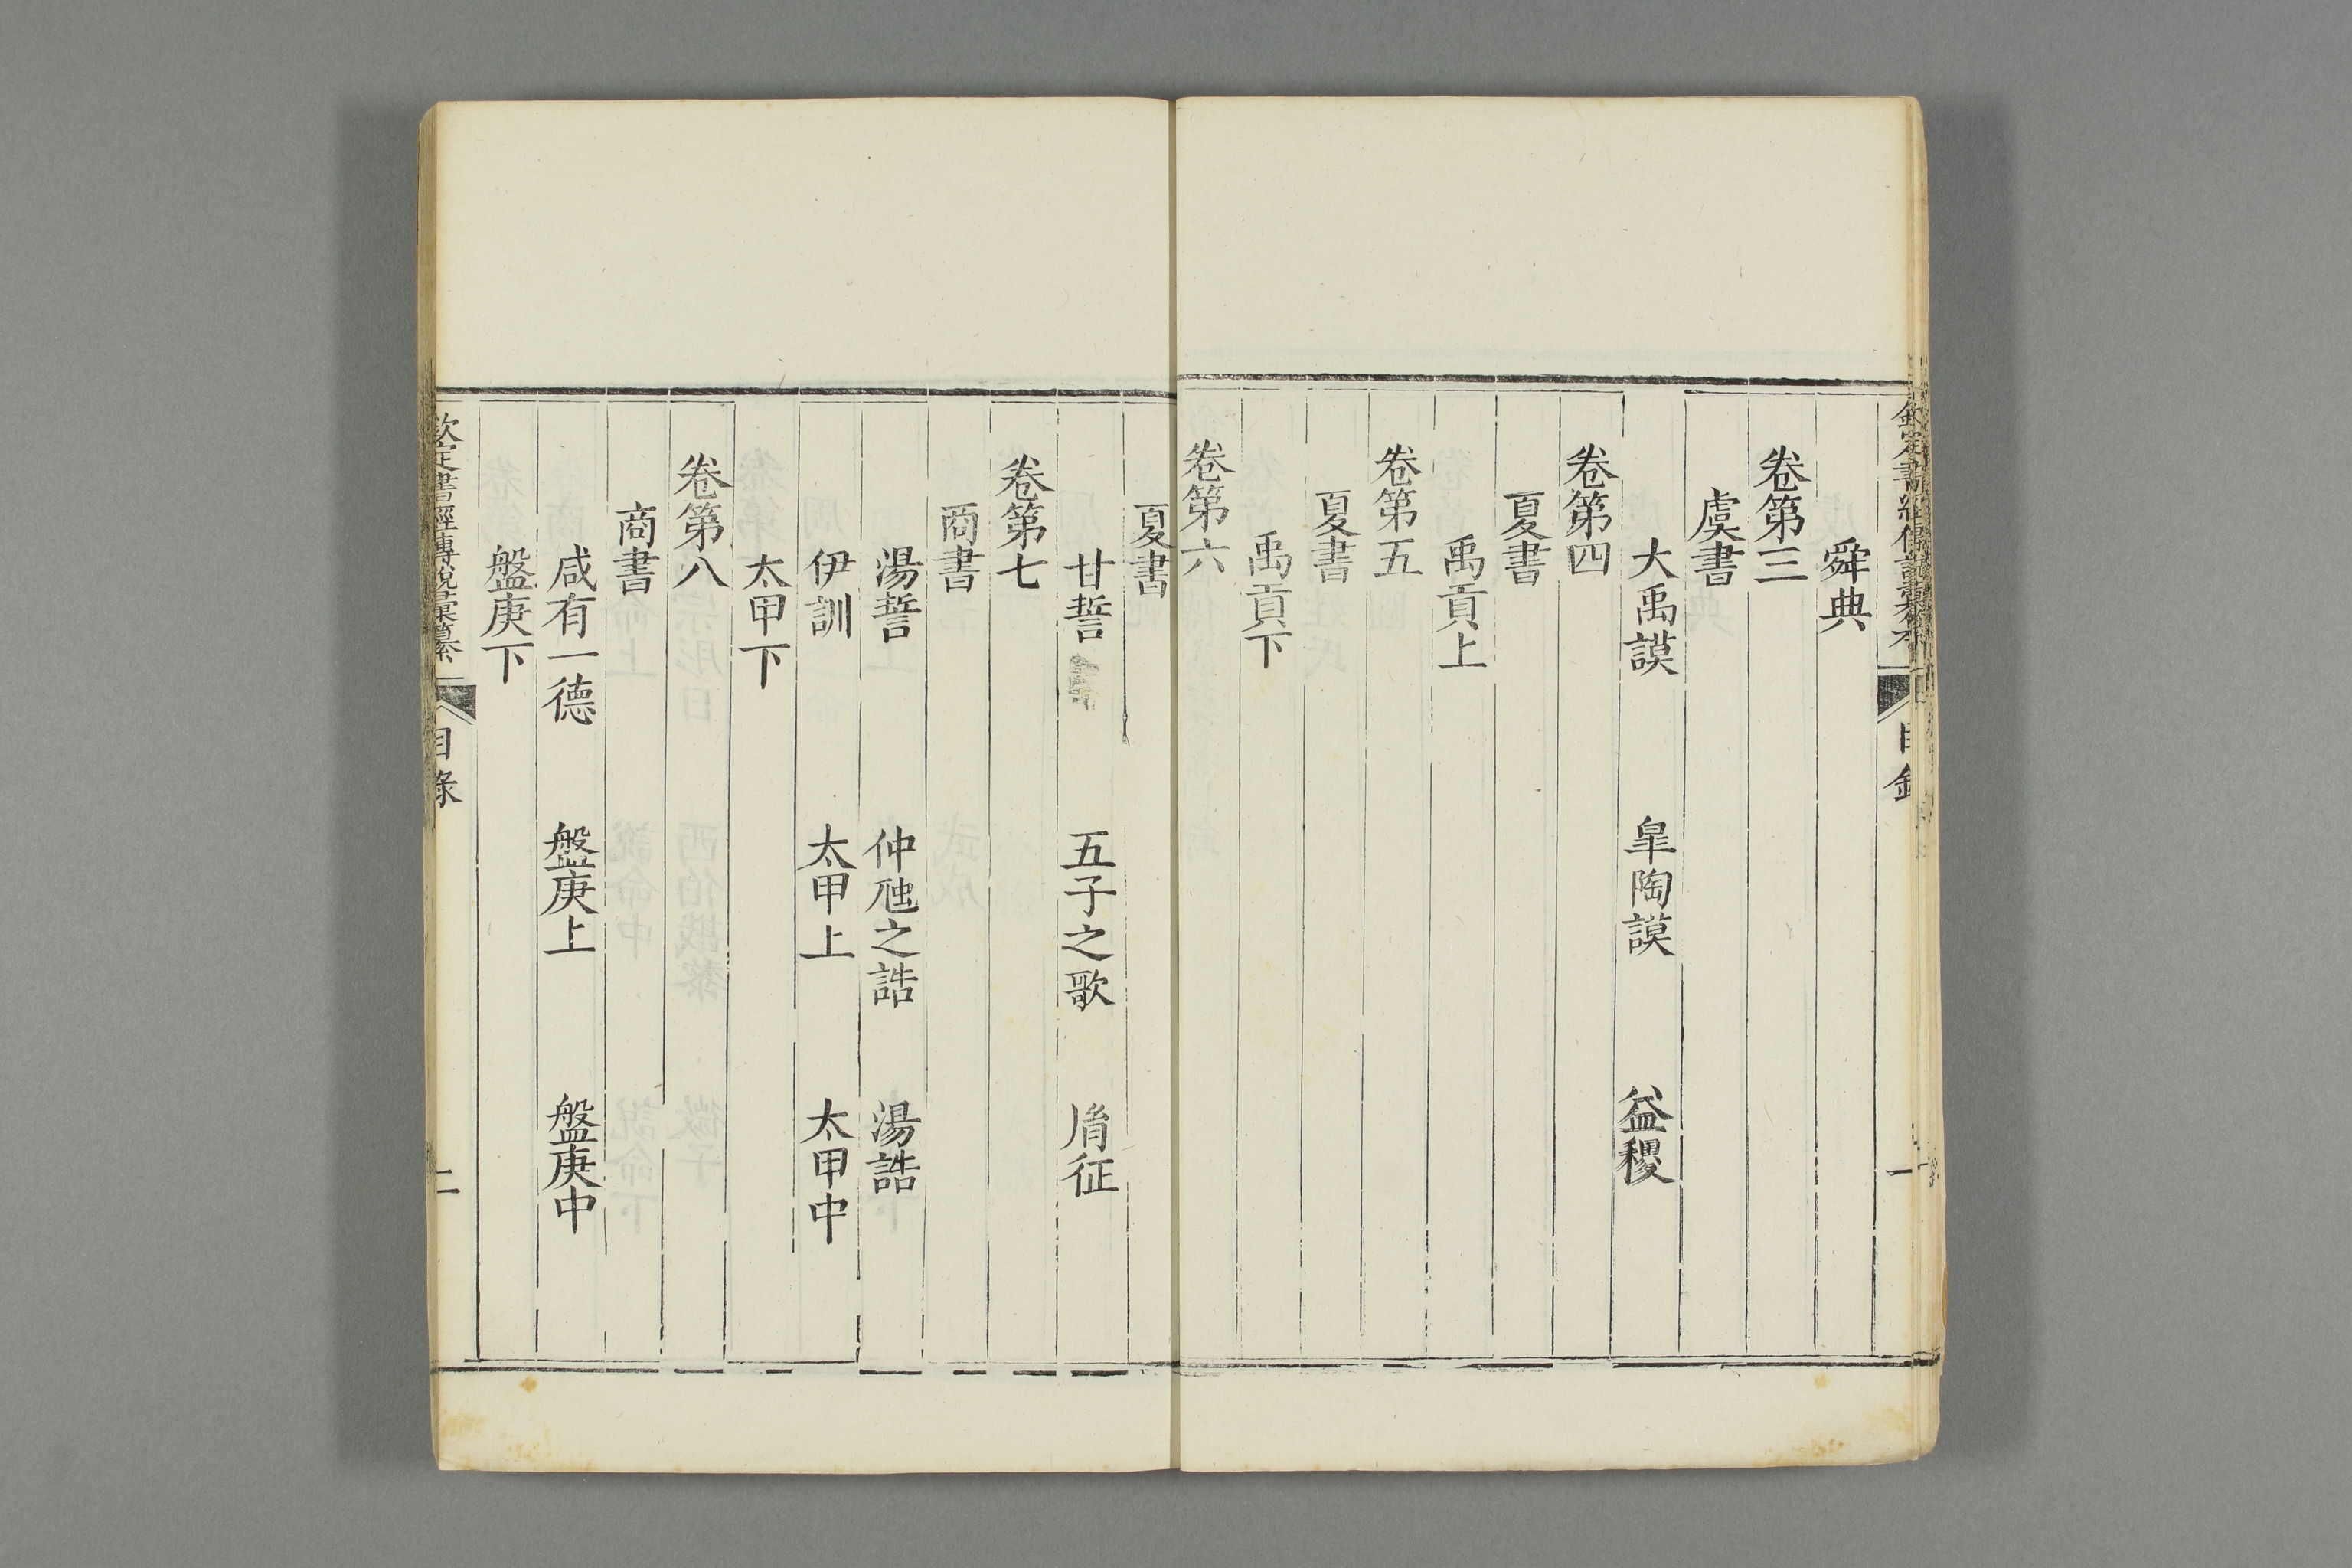 舜典
卷第三
虞書
大禹謨　皐陶謨　益稷
卷第四
夏書
禹貢上
卷第五
夏書
禹貢下
卷第六
夏書
甘誓　五子之歌　胤征
卷第七
商書
湯誓　仲虺之誥　湯誥
伊訓　太甲上　太甲中
太甲下
卷第八
商書
咸有一德　盤庚上　盤庚中
盤庚下
欽定書經傳說彙纂　目錄　二